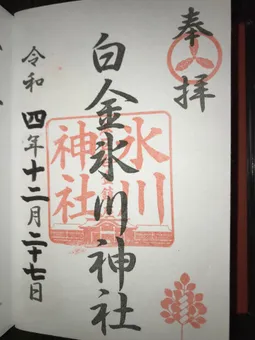 奉拝
白金氷川神社
氷川
神社
令和四年十二月二十七日